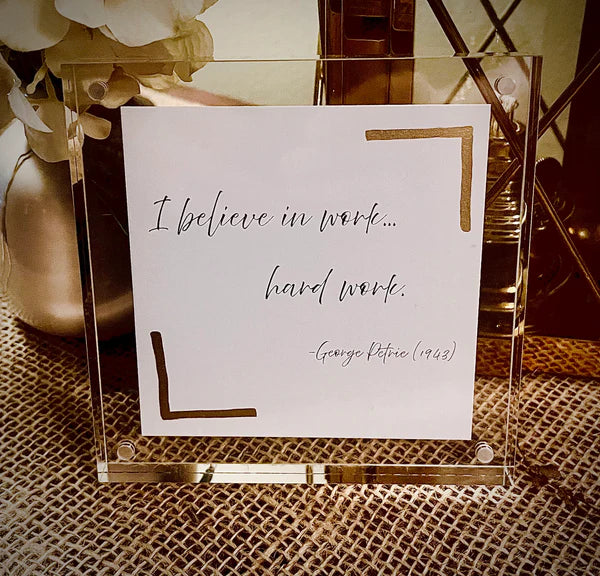 I believe in work...
hard work.
-George Petrie (1943)